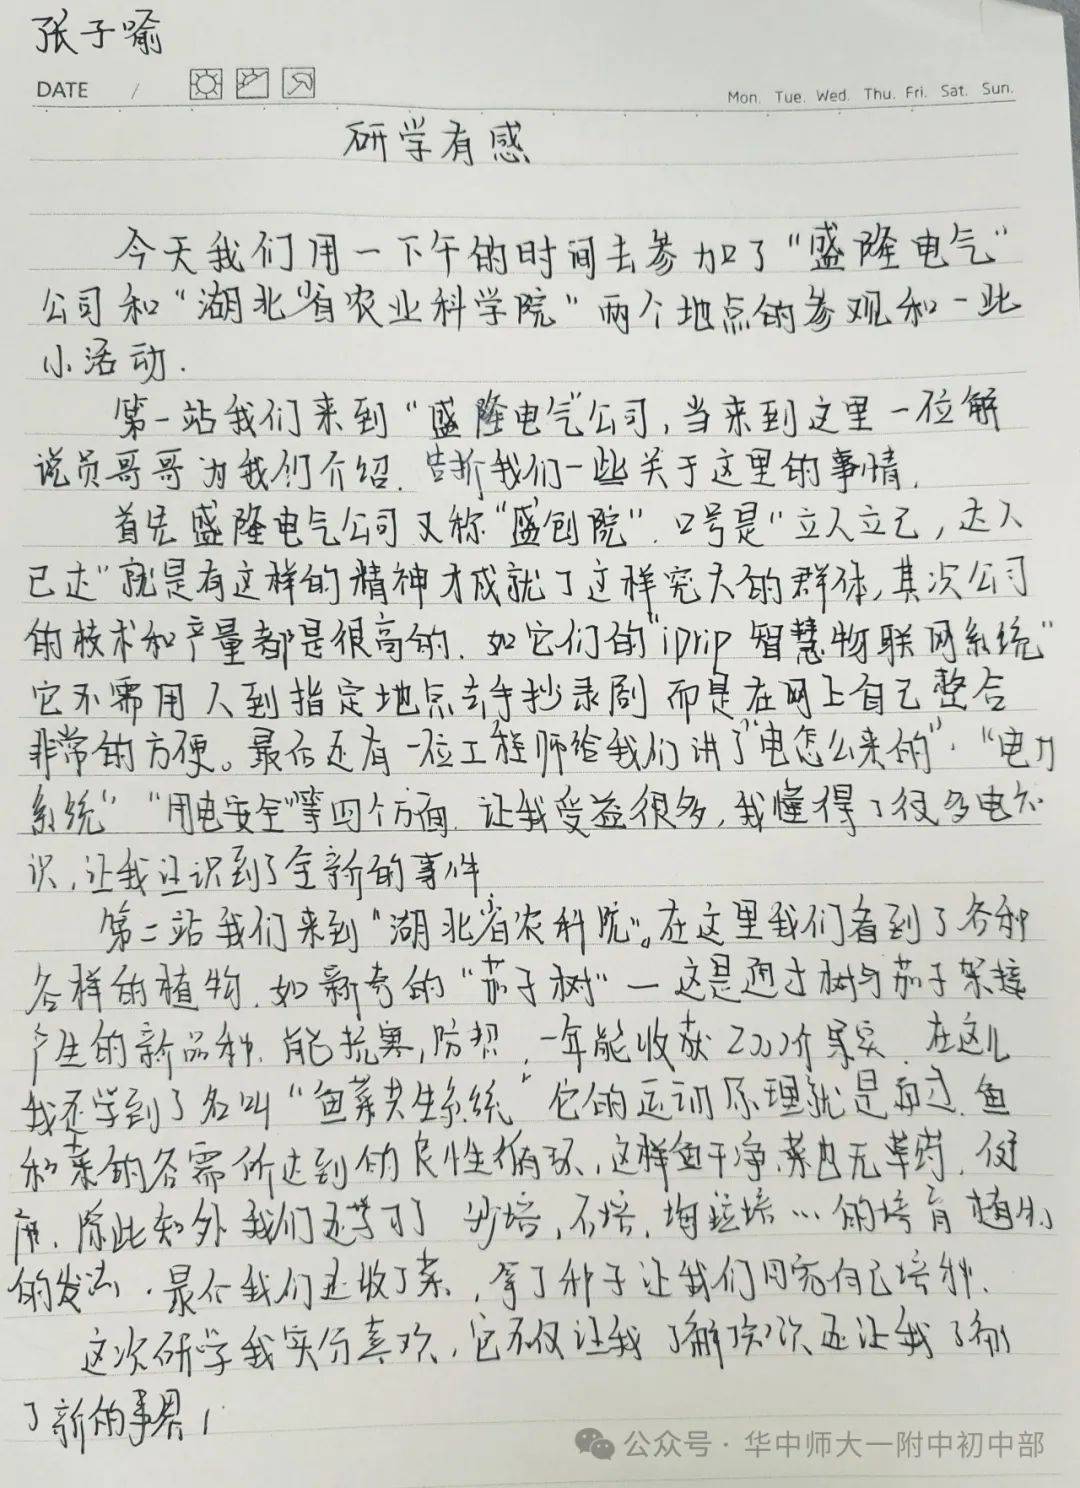 张子喻
DATE / Mon. Tue. Wed. Thu. Fri. Sat. Sun.
研学有感
今天我们用一下午的时间去参加了“盛隆电气”
公司和“湖北省农业科学院”两个地点的参观和一些
小活动.
第一站我们来到“盛隆电气”公司,当来到这里一位解
说员哥哥为我们介绍.告折我们一些关于这里的事情,
首先盛隆电气公司又称“盛创院”.口号是“立人立己,达人
己达”就是有这样的精神才成就了这样的群体,其次公司
的技术和产量都是很高的.如它们的“iDrip智慧物联网系统”
它不需用人到指定地点去手抄录剧而是在网上自己整合
非常的方便。最后还有一位工程师给我们讲了“电怎么来的”.“电力
系统”“用电安全”等四个方面.让我受益很多,我懂得了很多电知
识,让我认识到了全新的事件
第二站我们来到“湖北省农科院”。在这里我们看到了各种
各样的植物.如新奇的“茄子树”一这是通过树与茄子架接
产生的新品种.能抗寒,防,一年能收获2000个果实.在这儿
我还学到了名叫“鱼菜共生系统”它的运训原理就是通过.鱼
和菜的各需所达到的良性循环,这样鱼干净,菜也无草药,健
康.除此知外我们还学习了沙培,石培,培…的培育植物
的发法.最后我们还收了菜,拿了种子让我们回家自己培种.
这次研学我实分喜欢,它不仅让我了解还让我了
了新的事界!
公众号·华中师大一附中初中部